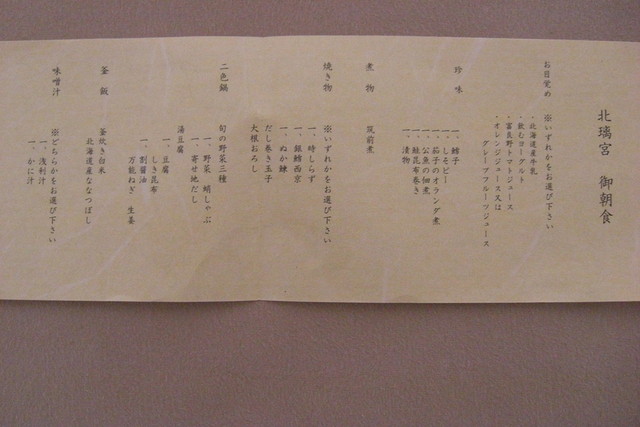 北璃宮　御朝食
お目覚め　※いずれかをお選び下さい
・北海道産牛乳
・飲むヨーグルト
・富良野トマトジュース
・オレンジジュース又は
グレープフルーツジュース
珍味
一、鱈子
一、しそビー
一、茄子のオランダ煮
一、公魚の佃煮
一、鮭昆布巻き
一、漬物
煮物　筑前煮
焼き物　※いずれかをお選び下さい
一、時しらず
一、銀鱈西京
一、ぬか鰊
だし巻き玉子
大根おろし
二色鍋　旬の野菜三種
一、野菜　蛸しゃぶ
一、寄せ地だし
湯豆腐
一、豆腐
しき昆布
一、割醤油
万能ねぎ　生姜
釜飯　釜炊き白米
北海道産ななつぼし
味噌汁　※どちらかをお選び下さい
一、浅利汁
一、かに汁